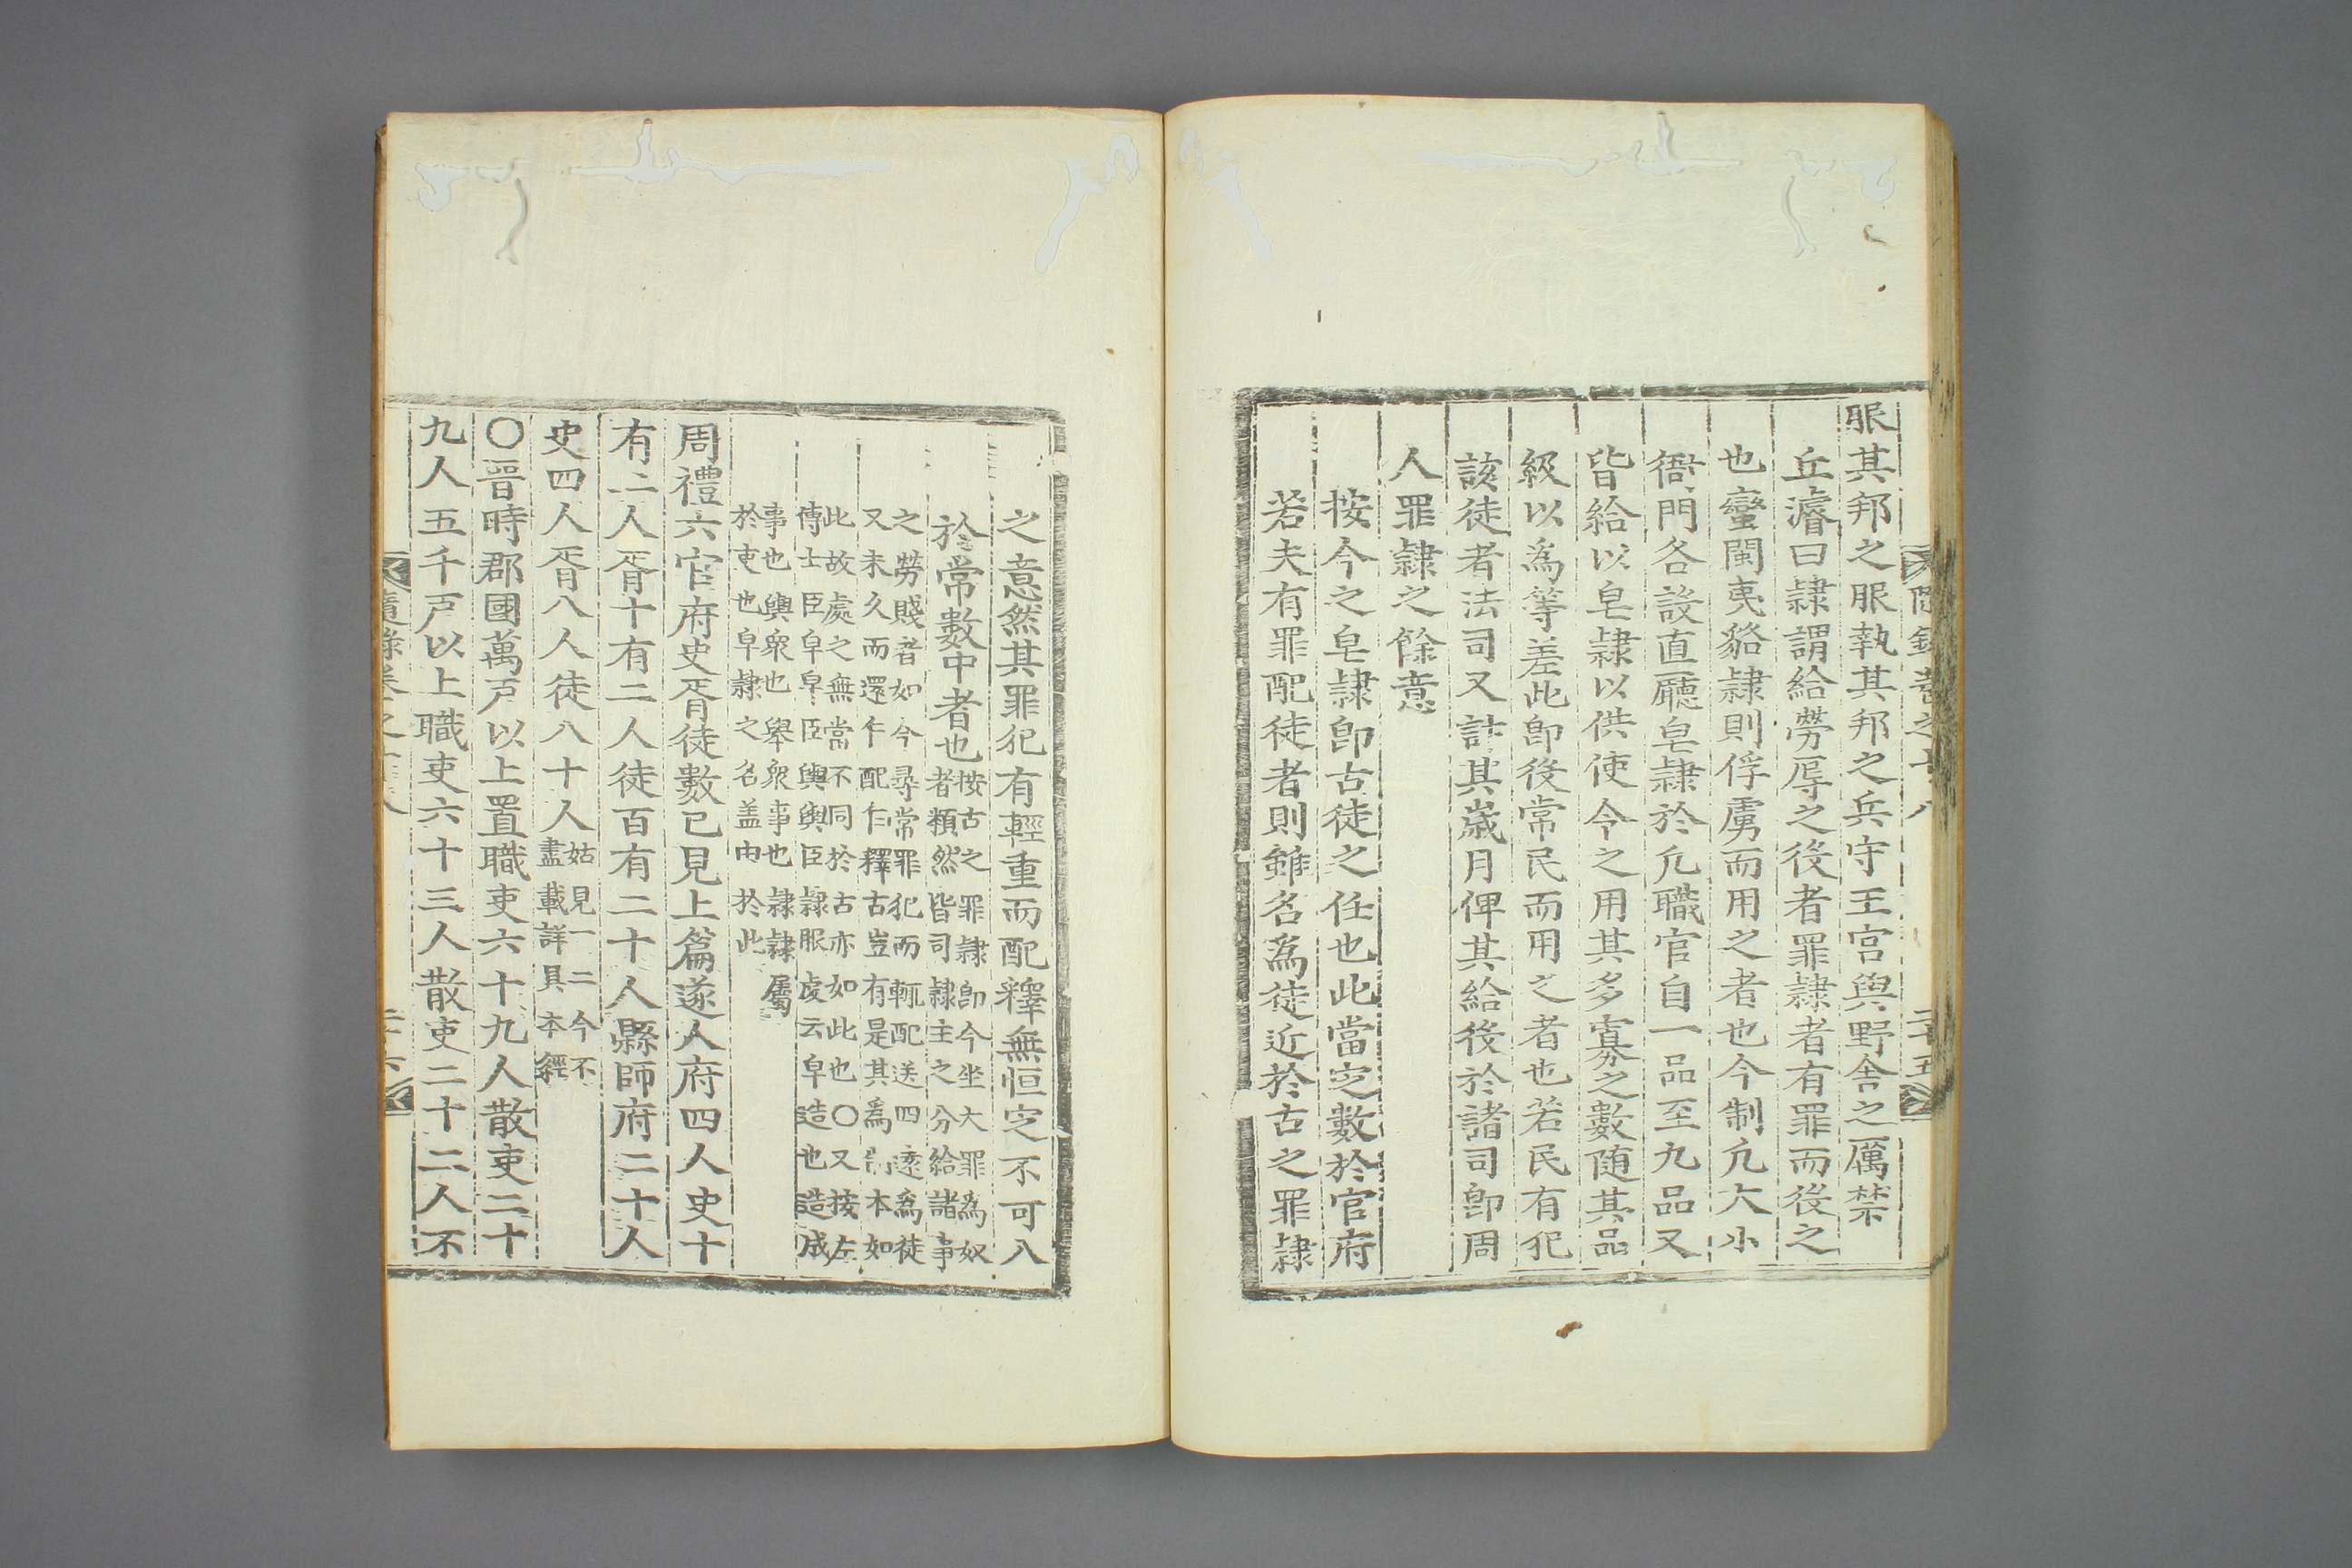 服其邦之服執其邦之兵守王宮與野舍之厲禁
丘濬曰隷謂給勞辱之役者罪隷者有罪而役之
也蠻閩夷貉隷則俘虜而用之者也今制凢大小
衙門各設直廳皂隷於凢職官自一品至九品又
皆給以皂隷以供使令之用其多寡之數随其品
級以爲等差此卽役常民而用之者也若民有犯
該徒者法司又計其歲月俾其給役於諸司卽周
人罪隷之餘意
按今之皂隷卽古徒之任也此當定數於官府
若夫有罪配徒者則雖名爲徒近於古之罪隷
之意然其罪犯有輕重而配釋無恒定不可入
於常數中者也
按古之罪隷卽今坐大罪爲奴
者類然皆司隷主之分給諸事
之勞賤者如今尋常罪犯而輒配送四遠爲徒
又未久而還乍配乍釋古豈有是其爲 本如
此故處之無常不同於古亦如此也〇又按左
傳士臣皁皁臣輿輿臣隷服虔云皁造也造成
事也輿衆也舉衆事也隷隷屬
於吏也皁隷之名盖由於此
周禮六官府史胥徒數已見上篇遂人府四人史十
有二人胥十有二人徒百有二十人縣師府二十人
史四人胥八人徒八十人
姑見一二今不
盡載詳具本經
〇晉時郡國萬戶以上置職吏六十九人散吏二十
九人五千戶以上職吏六十三人散吏二十二人不
隨錄卷之十八
二十五
隨錄卷之十八
二十六